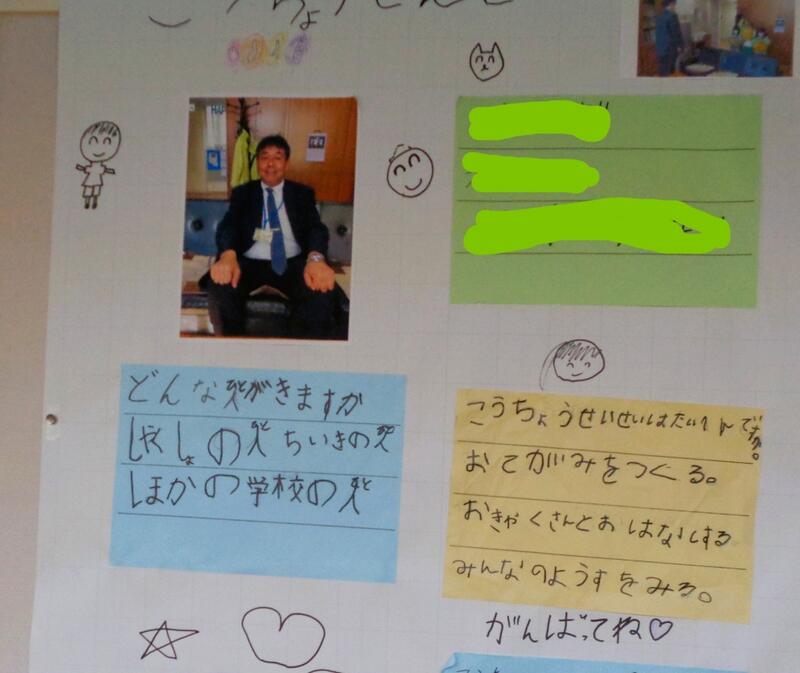 どんな人がきますか
しやくしょの人 ちいきの人
ほかの学校の人
こうちょうせいせいはたいへんですか。
おてがみをつくる。
おきゃくさんとおはなしする
みんなのようすをみる。
がんばってね♡